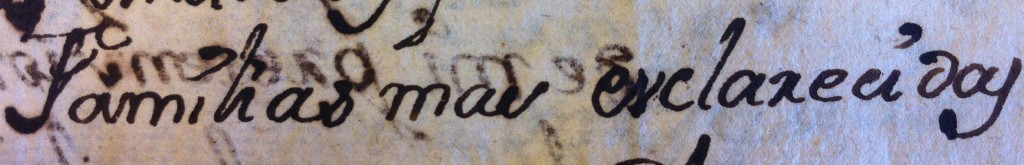 familias mas esclarecidas